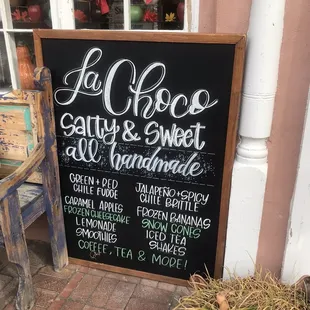 La Choco
Salty & Sweet
all handmade
GREEN + RED
CHILE FUDGE
CARAMEL APPLES
FROZEN CHEESECAKE
LEMONADE
SMOOTHIES
JALAPEÑO + SPICY
CHILE BRITTLE
FROZEN BANANAS
SNOW CONES
ICED TEA
SHAKES
COFFEE, TEA & MORE!